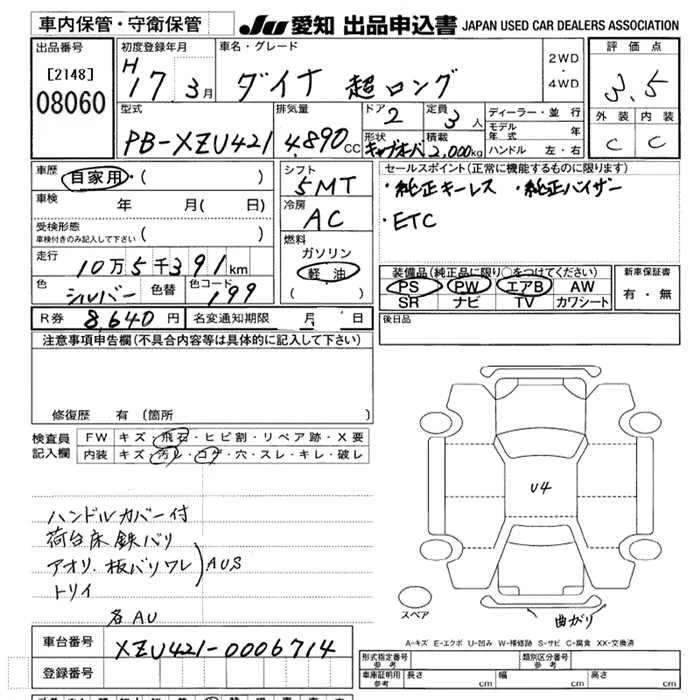 車内保管・守衛保管
JU 愛知 出品申込書 JAPAN USED CAR DEALERS ASSOCIATION
出品番号 [2148] 08060
初度登録年月 H17 3月
車名・グレード ダイナ 超ロング
2WD・4WD
評価点 3.5
外装 C 内装 C
型式 PB-XZU421
排気量 4,890cc
ドア 2
形状 キャブオーバ
定員 3人
積載 2,000kg
ディーラー・並行
モデル年式 年
ハンドル 左・右
車歴 自家用・( )
車検 年 月( 日)
受検形態 車検付きのみ記入して下さい ( )
走行 10万5千391km
色 シルバー 色替 色コード 199
シフト 5MT
冷房 AC
燃料 ガソリン 軽油 ( )
セールスポイント(正常に機能するものに限ります)
・純正キーレス ・純正バイザー
・ETC
装備品(純正品に限り○をつけてください)
PS PW エアB AW
SR ナビ TV カワシート
新車保証書 有・無
R券 8,640円 名変通知期限 月 日
後日品
注意事項申告欄(不具合内容等は具体的に記入して下さい)
修復歴 有(箇所
検査員記入欄
FW キズ・飛石・ヒビ割・リペア跡・X要
内装 キズ・汚レ・コゲ・穴・スレ・キレ・破レ
ハンドルカバー付
荷台床鉄バリ
アオリ.板バリワレ AUS
トリイ
各AU
U4
スペア
曲がり
A-キズ E-エクボ U-凹み W-補修跡 S-サビ C-腐食 XX-交換済
車台番号 XZU421-0006714
登録番号
形式指定番号 参考
類別区分番号 参考
車庫証明用 参考 長さ cm 幅 cm 高さ cm